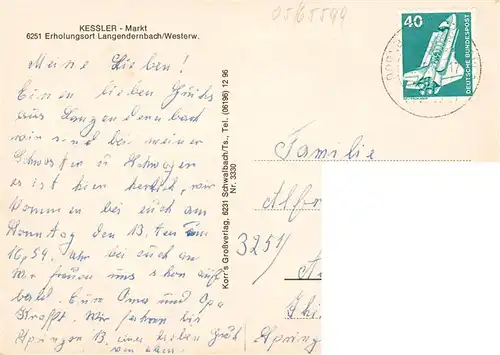 KESSLER - Markt
6251 Erholungsort Langendernbach/Westerw.
Meine Lieben!
Einen lieben Gruß
aus Langendernbach
wir sind bei meiner
Schwester u Schwager
es ist hier herrlich, wir
kommen bei euch am
Montag den 13.
16,59. Uhr bei euch an
Wir freuen uns auf
bald. Eure Oma und Opa
Krafft. Wir fahren bis
Springen B. einen lieben Gruß
von allen
Korr's Großverlag, 6231 Schwalbach/Ts., Tel. (06196) 12 96
Nr. 3330
0565599
40
DEUTSCHE BUNDESPOST
Familie
3251
Springe